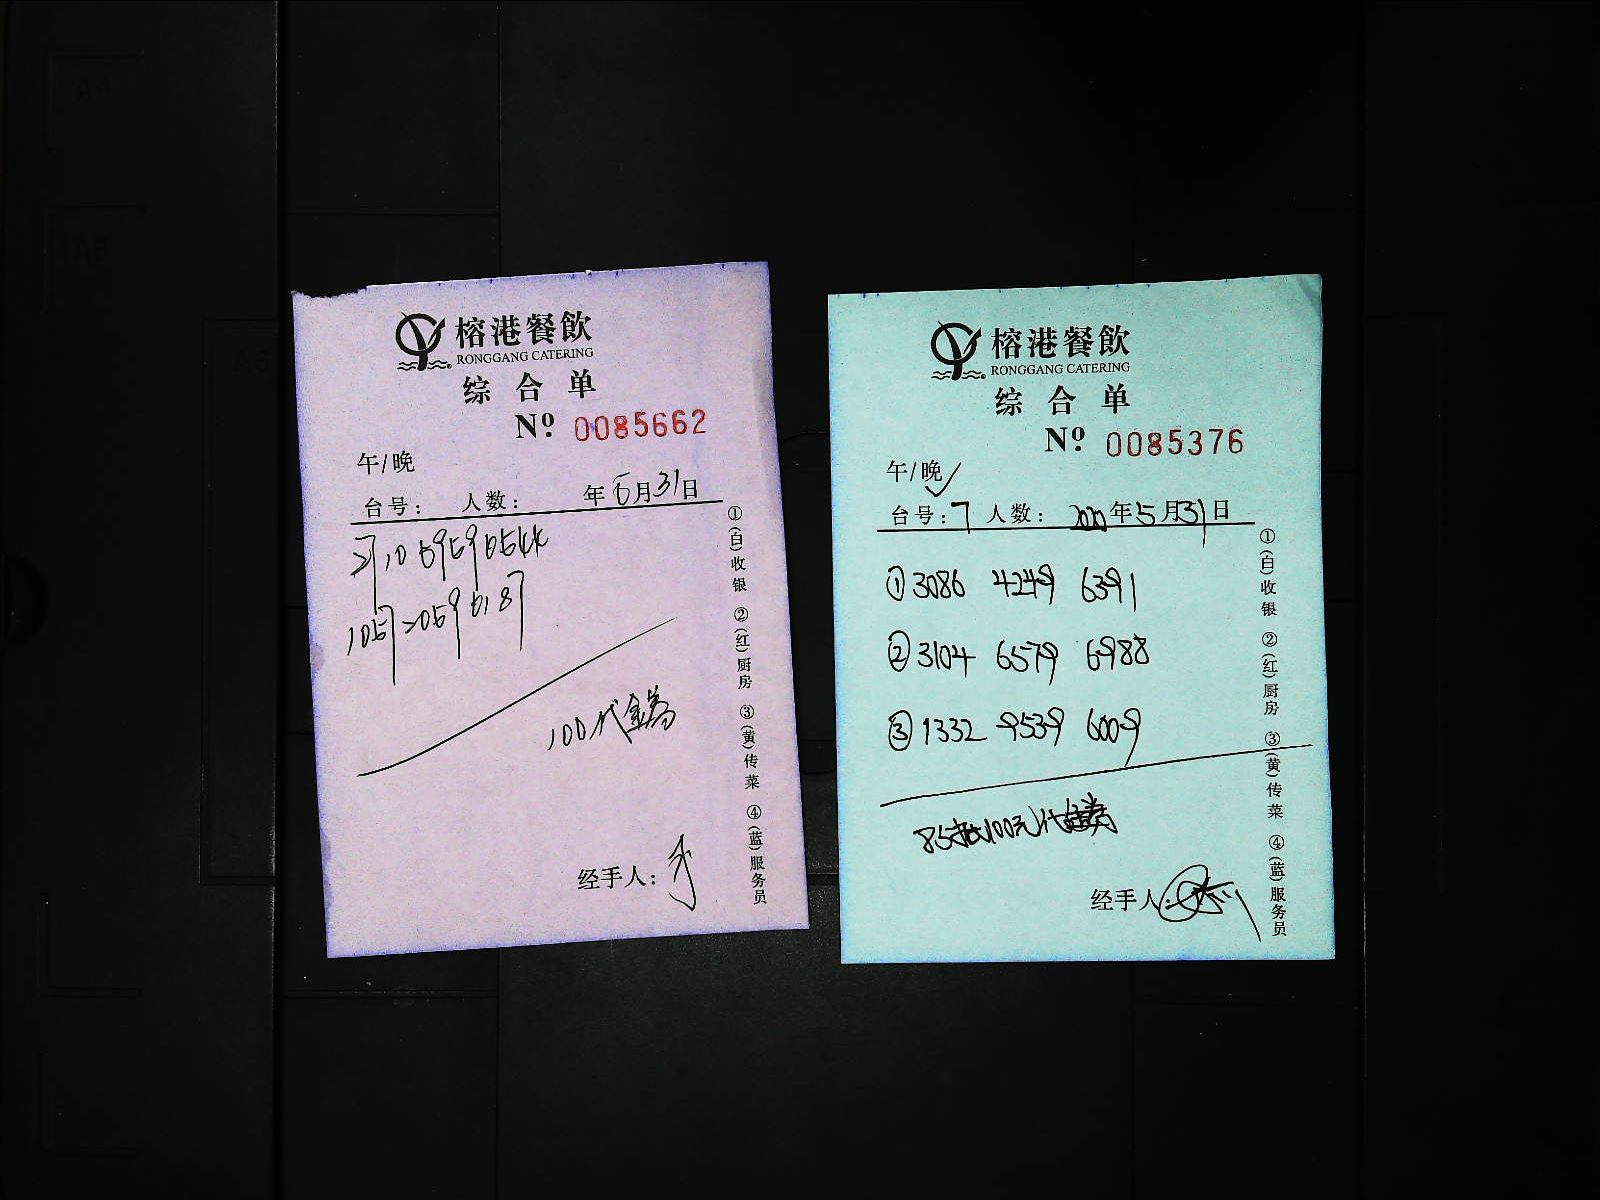 榕港餐飲
RONGGANG CATERING
综合单
Nº 0085662
午/晚
台号: 人数: 年5月31日
100代金券
经手人:
①(白)收银 ②(红)厨房 ③(黄)传菜 ④(蓝)服务员
榕港餐飲
RONGGANG CATERING
综合单
Nº 0085376
午/晚✓
台号:7 人数: 2020年5月31日
①3086 4249 6391
②3104 6579 6988
③1332 9539 6009
85抵100元代金券
经手人:
①(白)收银 ②(红)厨房 ③(黄)传菜 ④(蓝)服务员